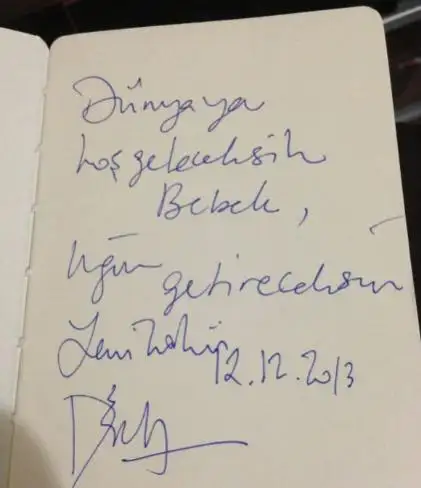 Dünyaya
hoş geleceksin
Bebek,
Uğur getireceksin
12.12.2013